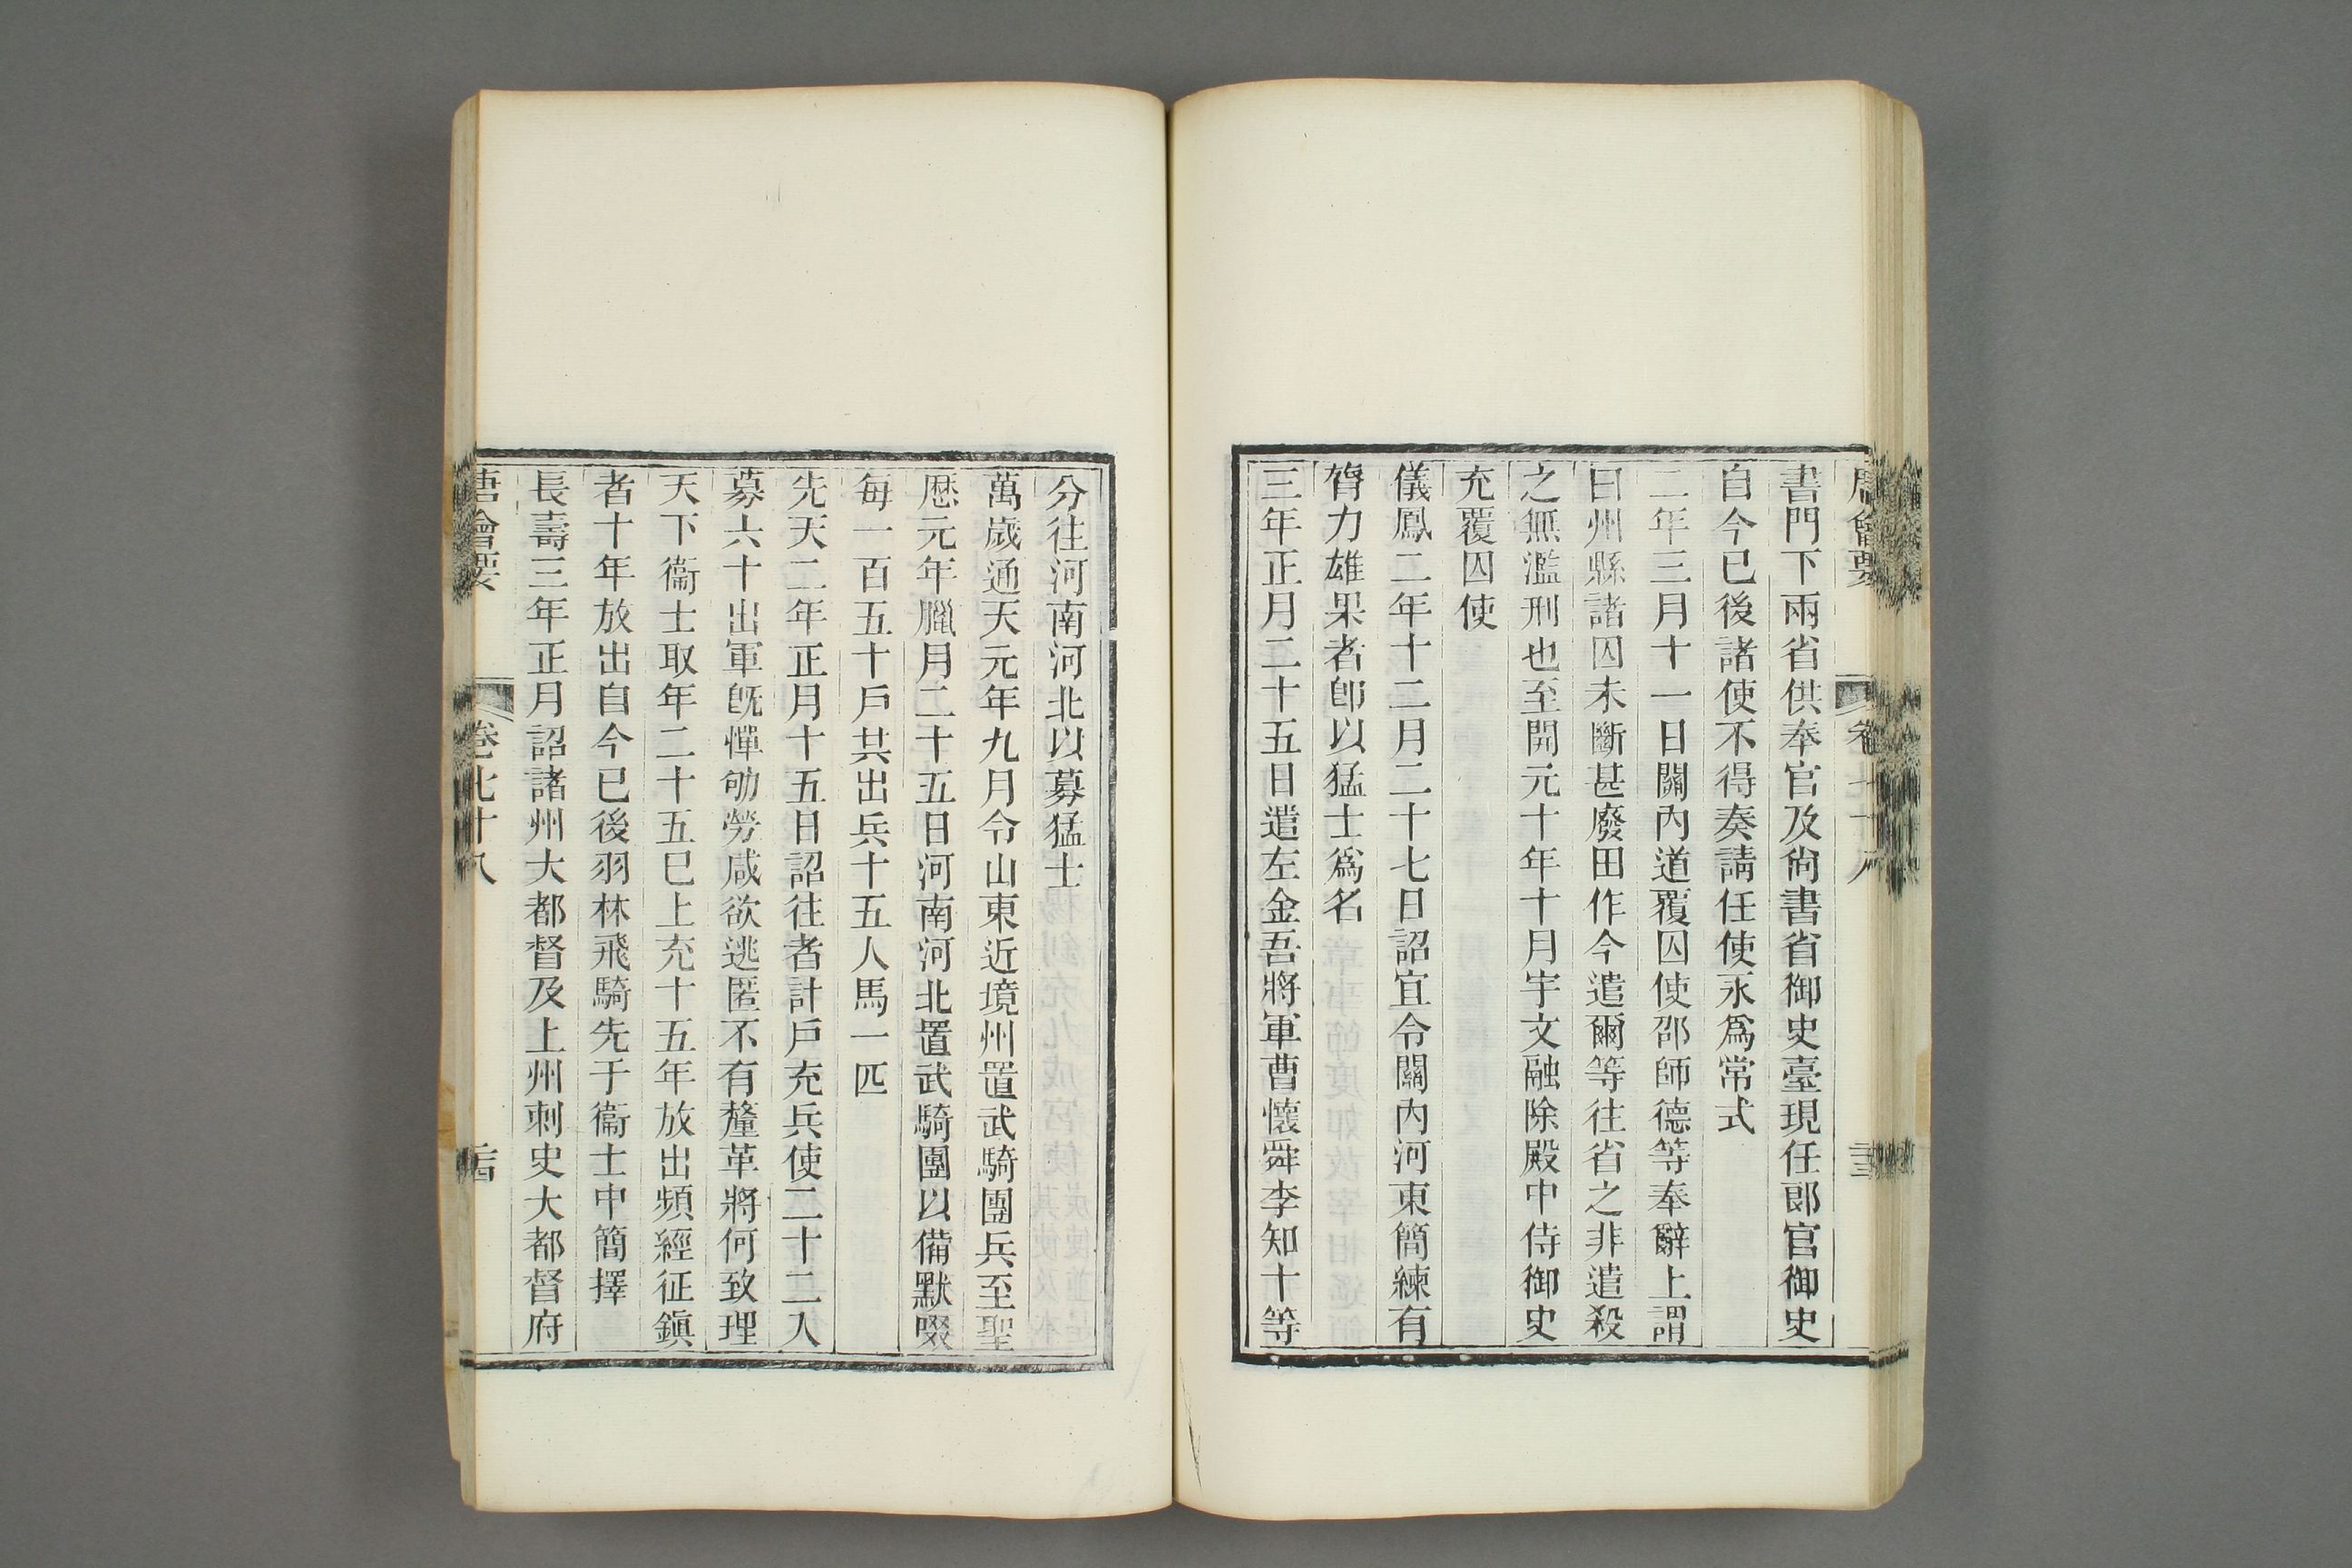 唐會要 卷七十八
書門下兩省供奉官及尙書省御史臺現任郞官御史
自今已後諸使不得奏請任使永爲常式
二年三月十一日關內道覆囚使邵師德等奉辭上謂
曰州縣諸囚未斷甚廢田作今遣爾等往省之非遣殺
之無濫刑也至開元十年十月宇文融除殿中侍御史
充覆囚使
儀鳳二年十二月二十七日詔宜令關內河東簡練有
膂力雄果者卽以猛士爲名
三年正月二十五日遣左金吾將軍曹懷舜李知十等
分往河南河北以募猛士
萬歲通天元年九月令山東近境州置武騎團兵至聖
歷元年臘月二十五日河南河北置武騎團以備默啜
每一百五十戶共出兵十五人馬一匹
先天二年正月十五日詔往者計戶充兵使二十二入
募六十出軍旣憚劬勞咸欲逃匿不有釐革將何致理
天下衞士取年二十五已上充十五年放出頻經征鎭
者十年放出自今已後羽林飛騎先于衞士中簡擇
長壽三年正月詔諸州大都督及上州刺史大都督府
唐會要 卷七十八